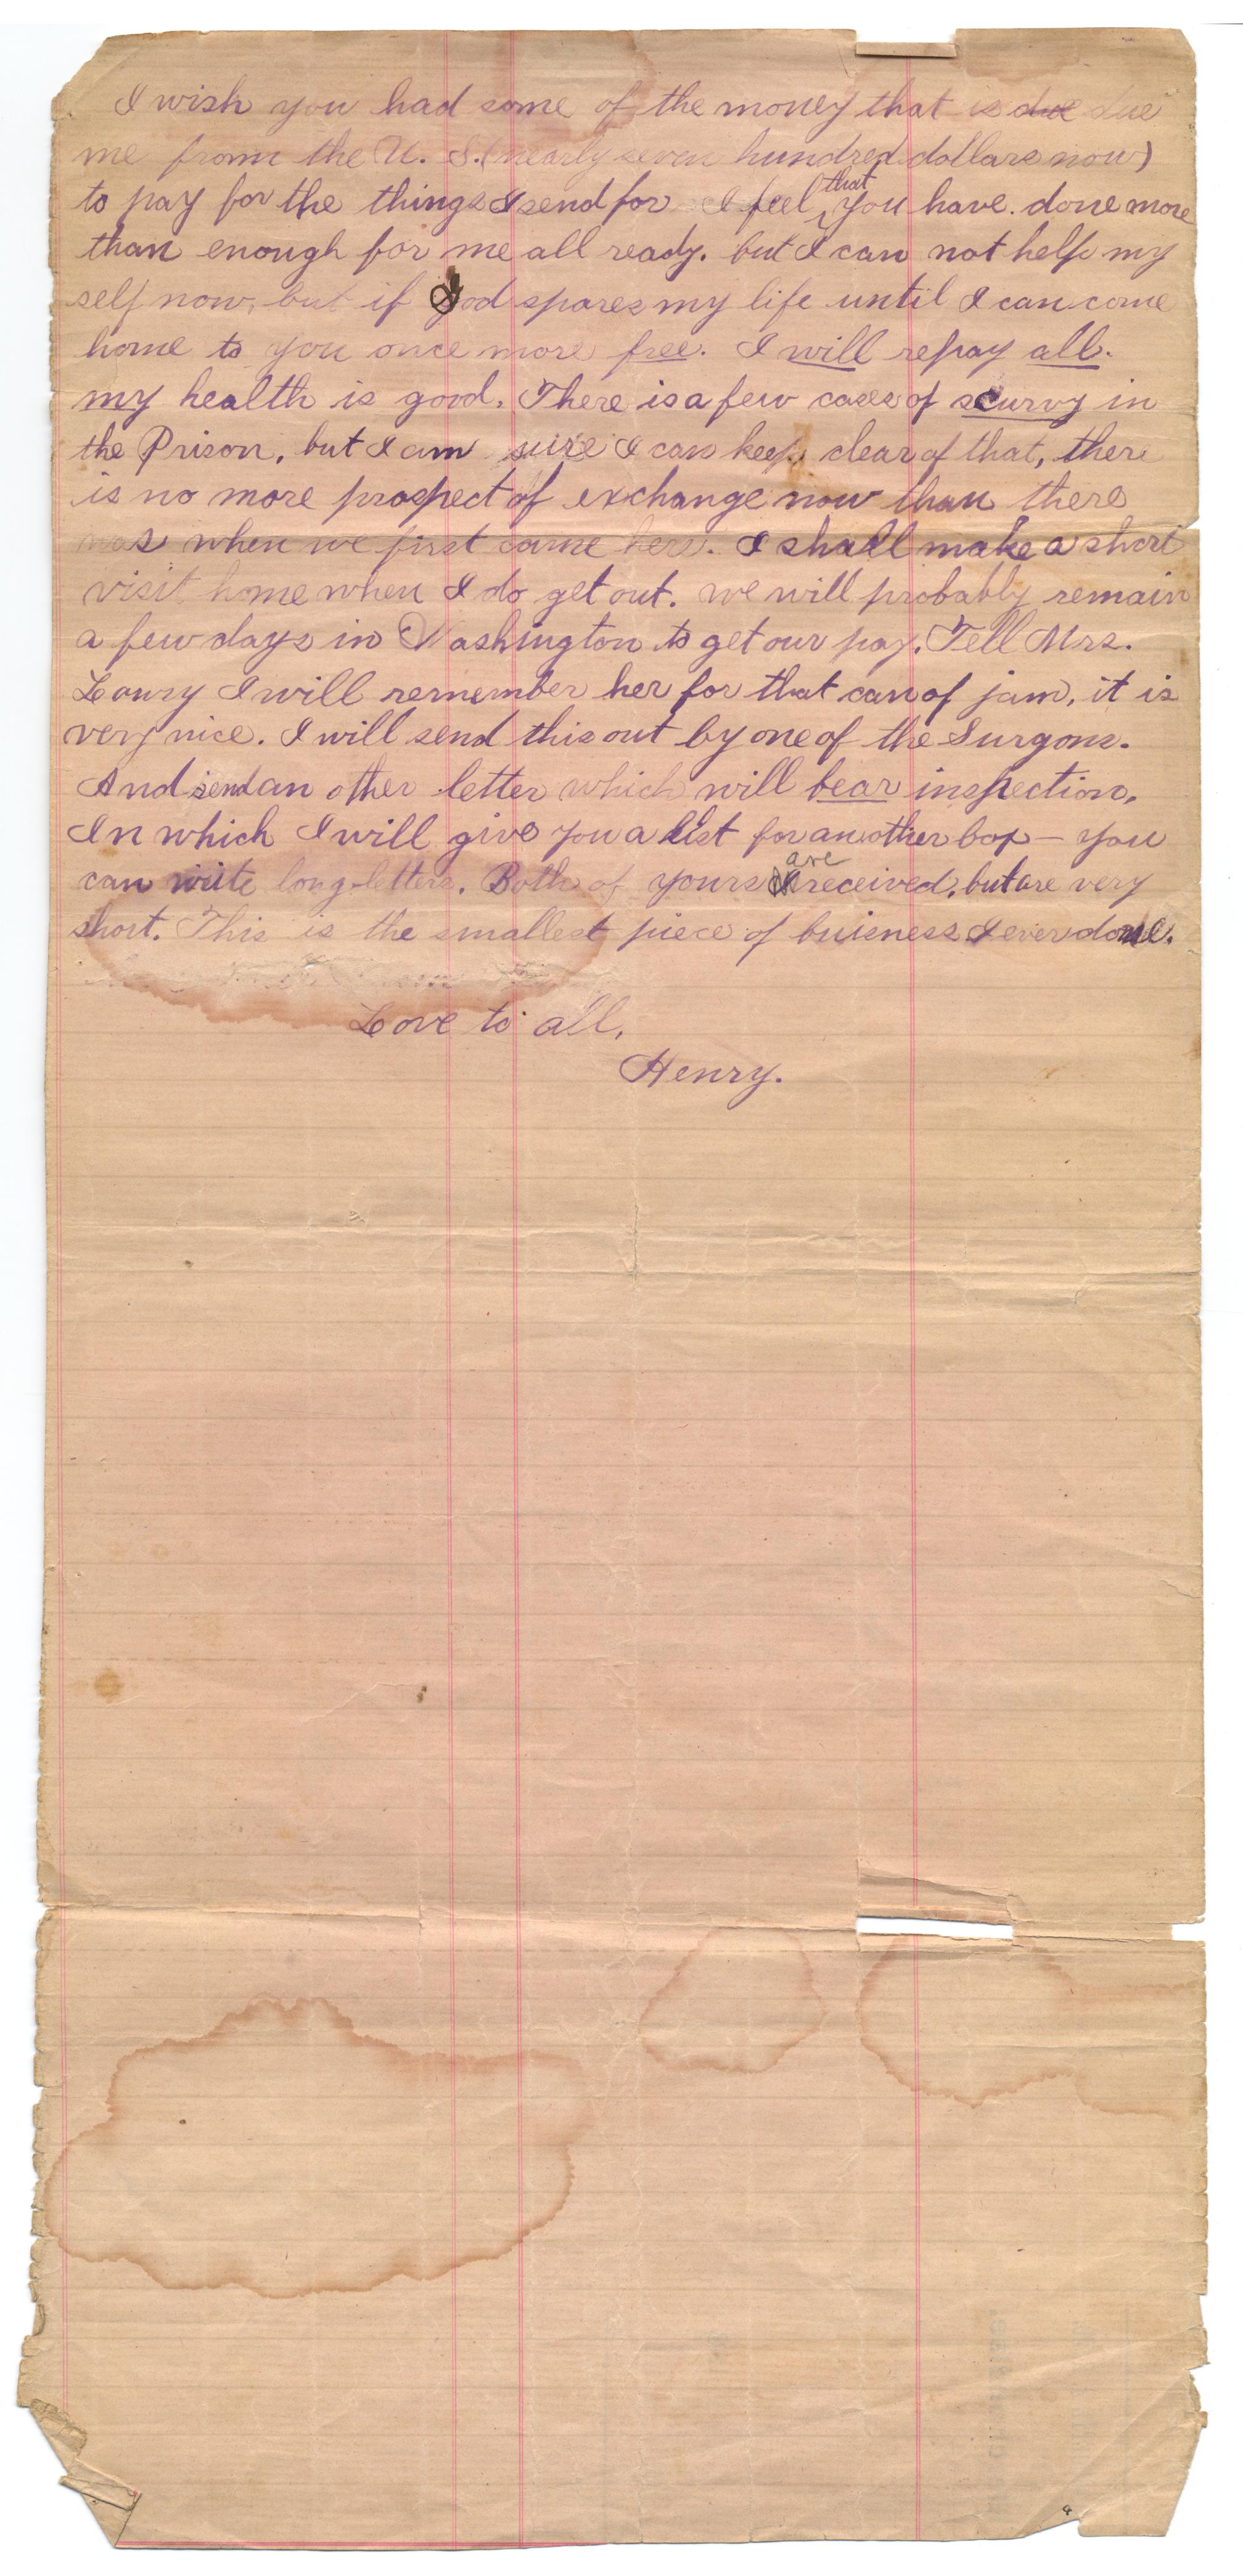 I wish you had some of the money that is due due
me fromm the U. S. (nearly seven hundred dollars now)
to pay for the things I send for I feel that you have. done more
than enough for me all ready. but I can not help my
self now, but if God spares my life until I can come
home to you once more free. I will repay all.
my health is good. There is a few cases of scurvy in
the Prison, but I am sure I can keep clear of that, there
is no more prospect of exchange now than there
was when we first came here. I shall make a short
visit home when I do get out. we will probably remain
a few days in Washington to get our pay. Tell Mrs.
Loury I will remember her for that can of jam, it is
very nice. I will send this out by one of the Surgons.
And send an other letter which will bear inspection.
In which I will give you a list for another box — you
can write long letters. Both of yours are received, but are very
short. This is the smallest piece of buisness I ever done.
Love to all,
Henry.
4